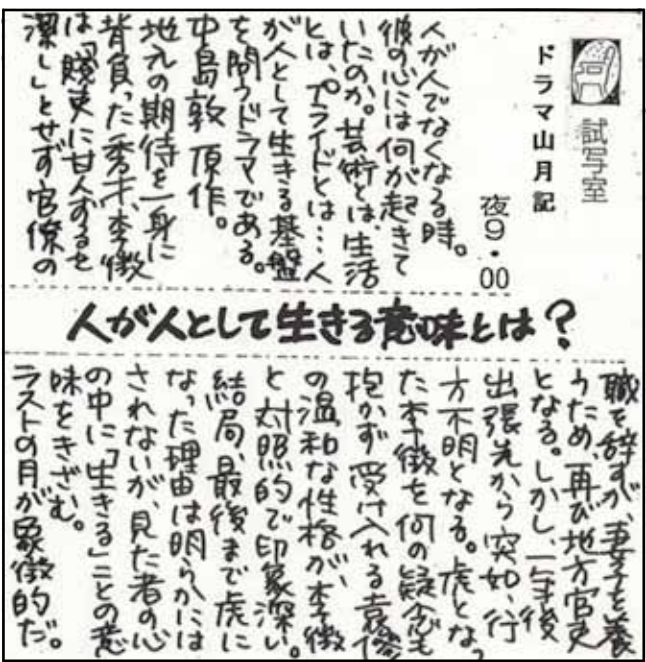 試写室
ドラマ山月記
夜9・00
人が人でなくなる時。
彼の心には何が起きて
いたのか。芸術とは、生活
とは、プライドとは…人
が人として生きる基盤
を問うドラマである。
中島敦 原作。
地元の期待を一身に
背負った秀才、李徴
は「賤吏に甘んずるを
潔し」とせず官僚の
人が人として生きる意味とは?
職を辞すが、妻子を養
うため、再び地方官吏
となる。しかし、一年後
出張先から突如、行
方不明となる。虎となっ
た李徴を何の疑念も
抱かず受け入れる袁傪
の温和な性格が、李徴
と対照的で印象深い。
結局、最後まで虎に
なった理由は明らかには
されないが、見た者の心
の中に「生きる」ことの意
味をきざむ。
ラストの月が象徴的だ。